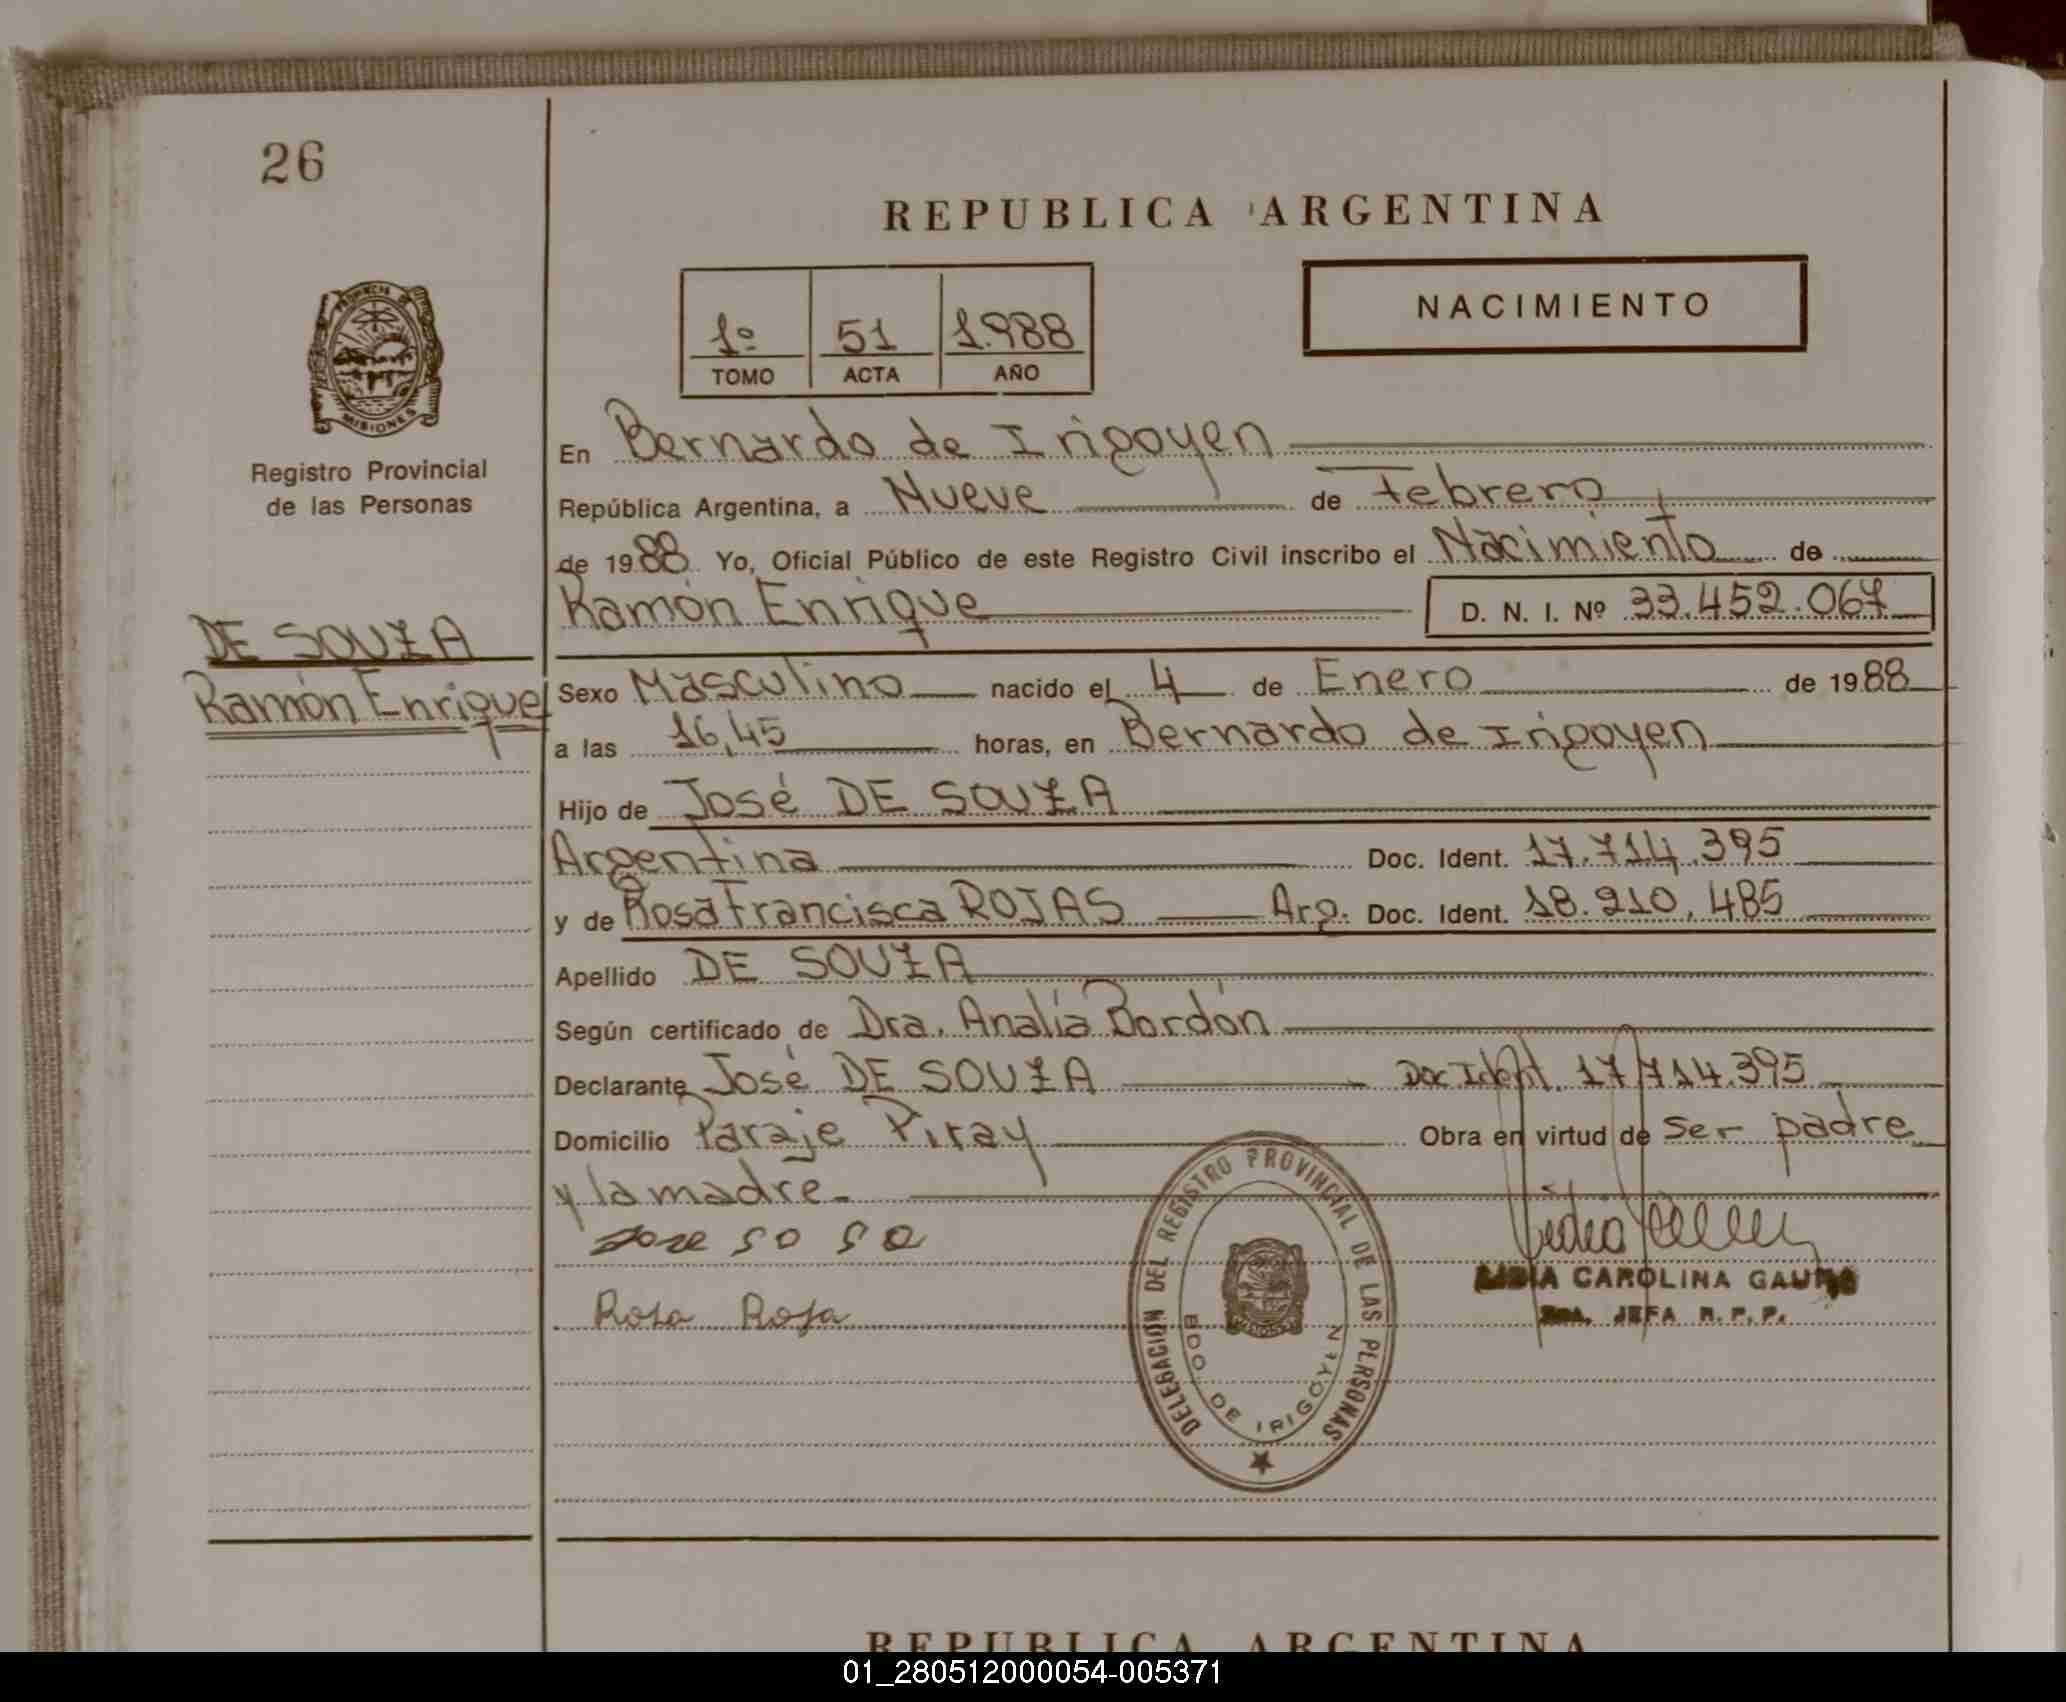 26
REPUBLICA ARGENTINA
NACIMIENTO
1º 51 1.988
TOMO ACTA AÑO
PROVINCIA DE
MISIONES
Registro Provincial
de las Personas
DE SOUZA
Ramón Enrique
En Bernardo de Irigoyen
República Argentina, a Nueve de Febrero
de 1988 Yo, Oficial Público de este Registro Civil inscribo el Nacimiento de
Ramón Enrique D. N. I. Nº 33.452.067
Sexo Masculino nacido el 4 de Enero de 1988
a las 16,45 horas, en Bernardo de Irigoyen
Hijo de José DE SOUZA
Argentina Doc. Ident. 17.714.395
y de Rosa Francisca ROJAS Arg. Doc. Ident. 18.210.485
Apellido DE SOUZA
Según certificado de Dra. Analía Bordón
Declarante José DE SOUZA Doc Ident. 17.714.395
Domicilio Paraje Piray Obra en virtud de ser padre
y la madre.
Jose so sa
Rosa Roja
DELEGACION DEL REGISTRO PROVINCIAL DE LAS PERSONAS
BDO. DE IRIGOYEN
LIDIA CAROLINA
JEFA R.P.P.
REPUBLICA ARGENTINA
01_280512000054-005371